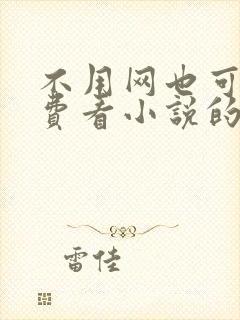 不用网也可
費看小説的
雷佳